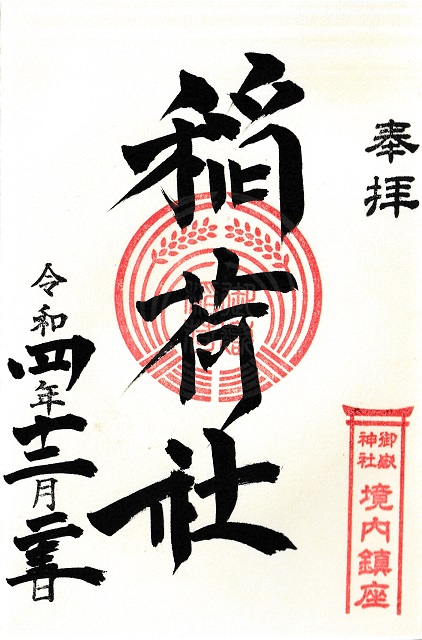 奉拝
御嶽
神社
境内鎮座
稲荷社
令和四年十二月二五日